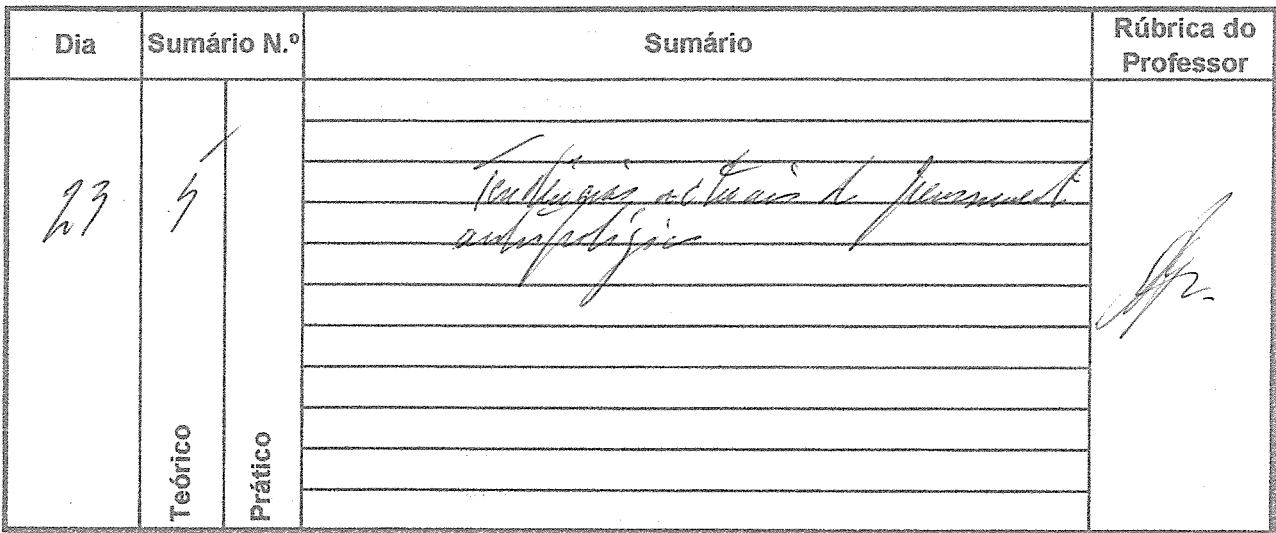 Dia
Sumário N.º
Sumário
Rúbrica do
Professor
23
5
Tendências actuais do pensamento
antropológico
Teórico
Prático